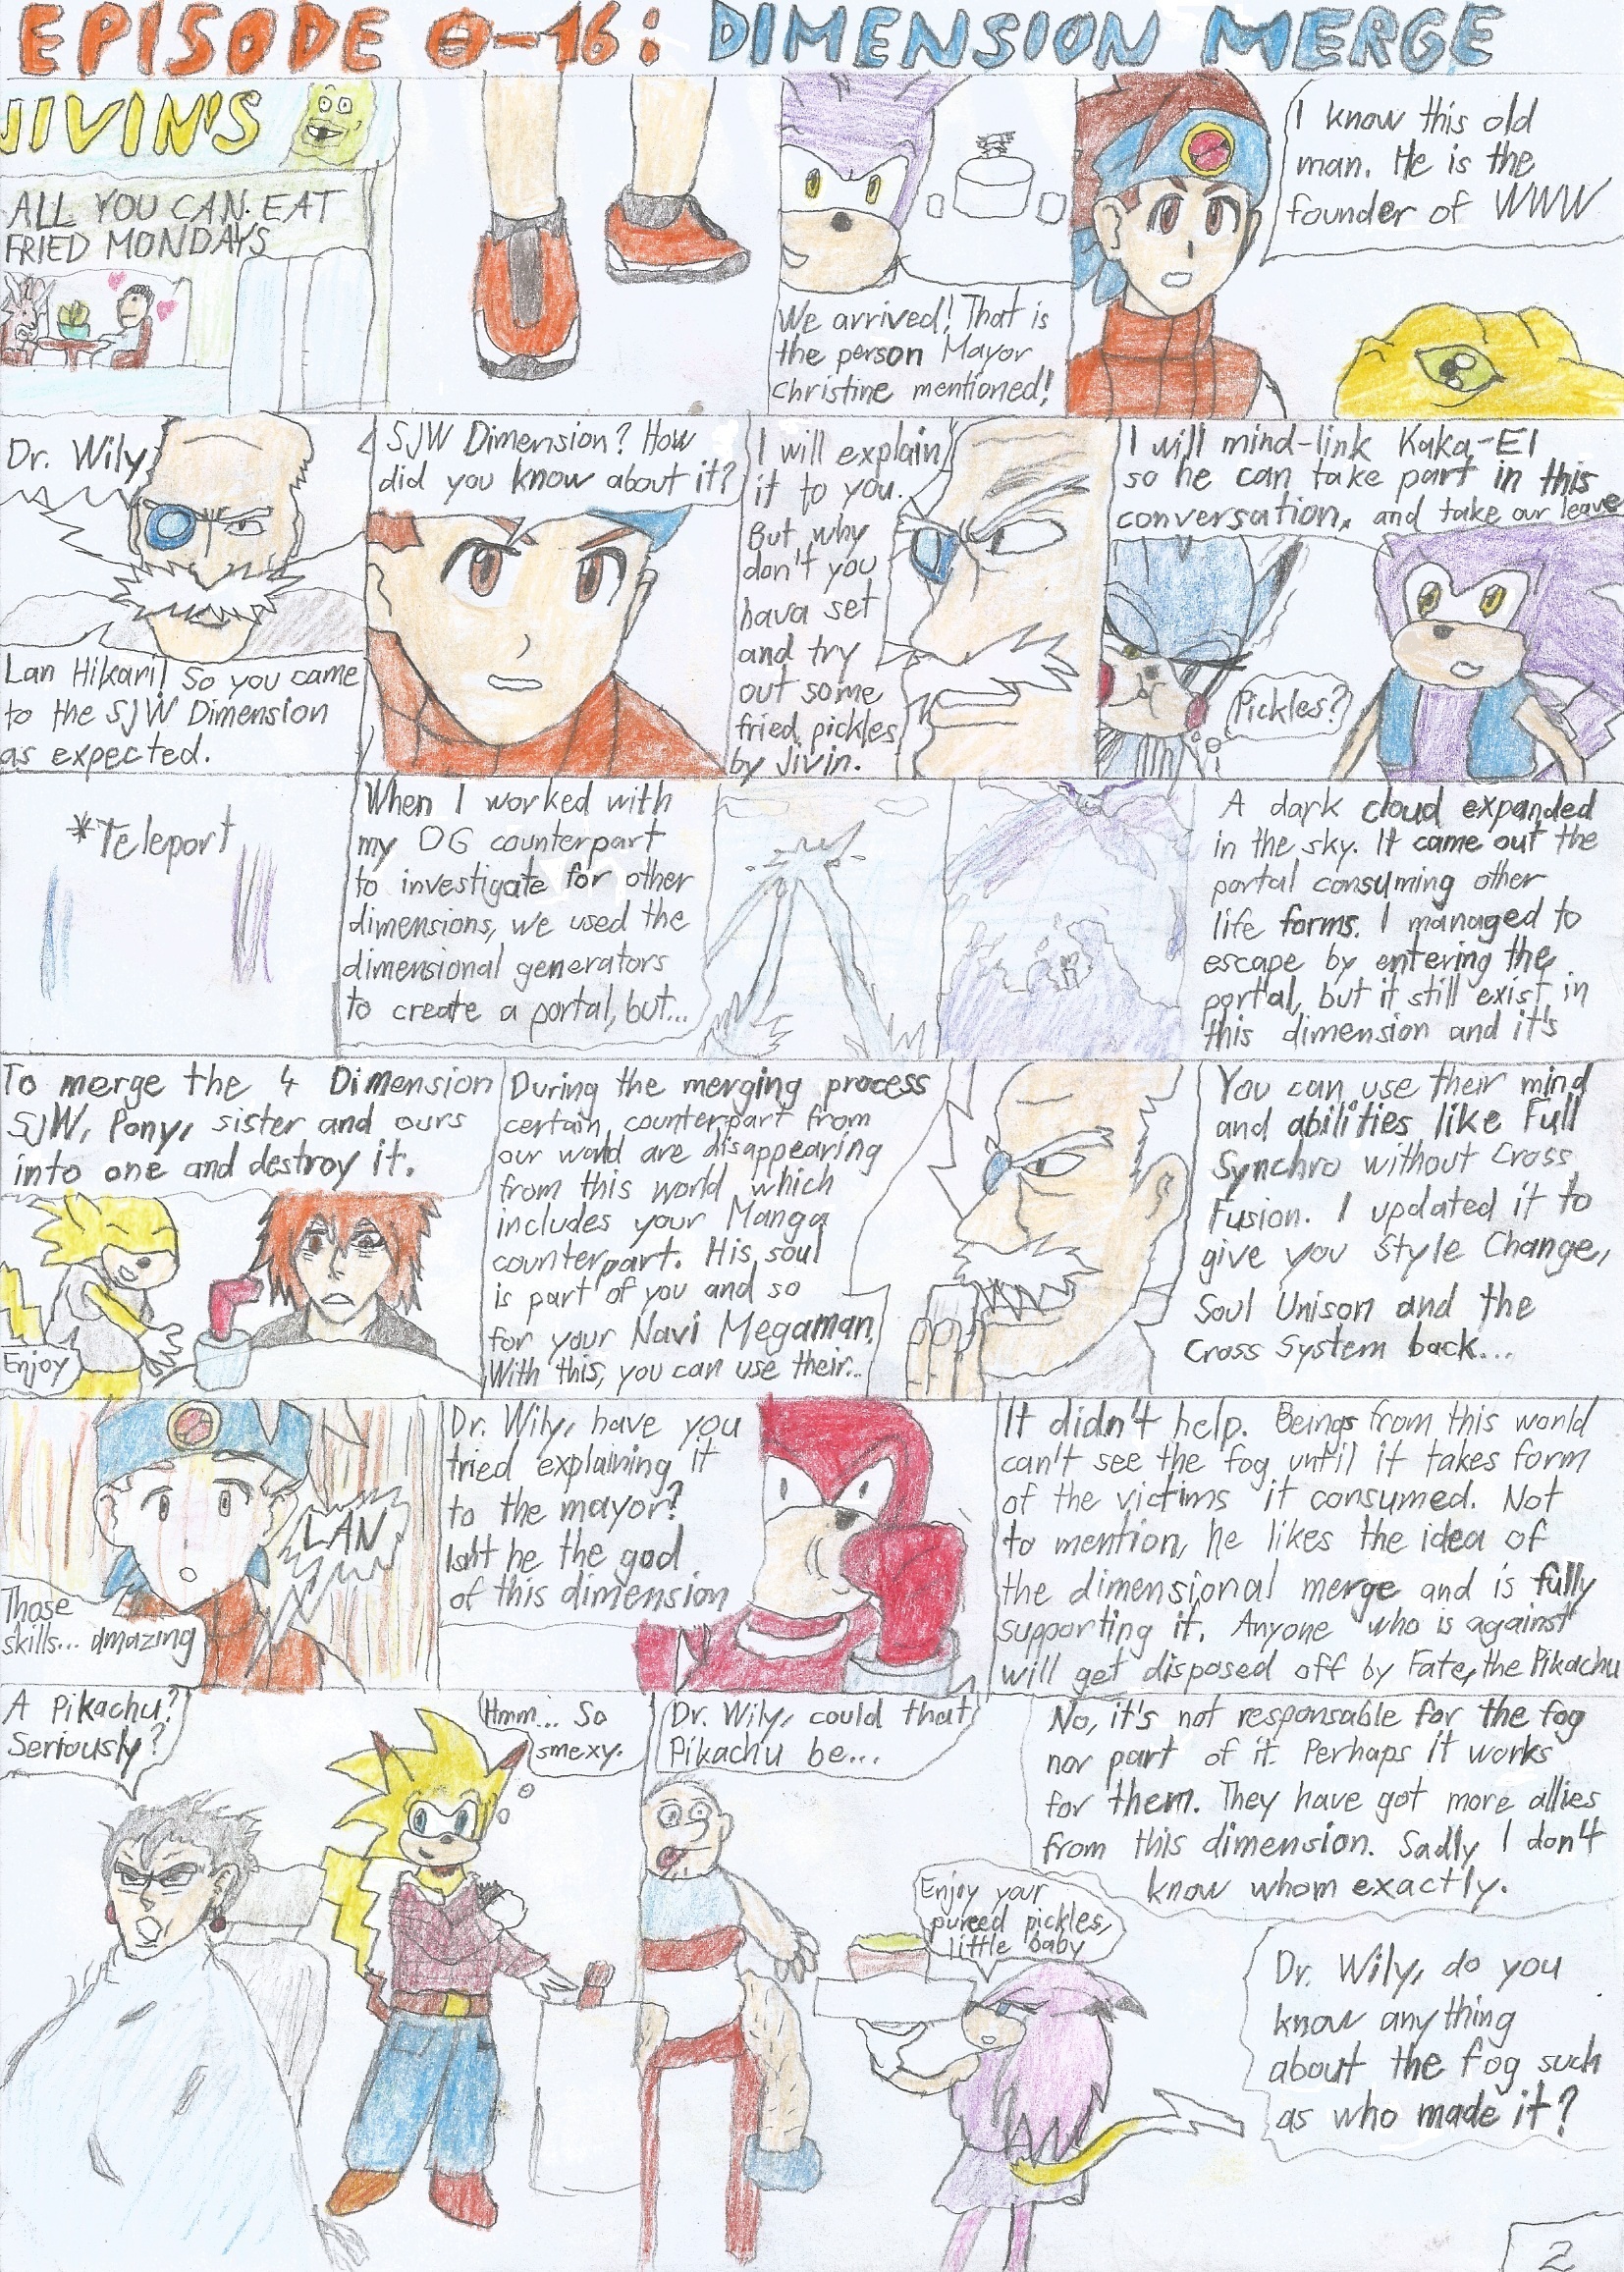 EPISODE 0-16: DIMENSION MERGE
JIVIN'S
ALL YOU CAN EAT
FRIED MONDAYS
We arrived! That is
the person Mayor
Christine mentioned!
I know this old
man. He is the
founder of WWW
Dr. Wily
Lan Hikari! So you came
to the SJW Dimension
as expected.
SJW Dimension? How
did you know about it?
I will explain
it to you.
But why
don't you
hava set
and try
out some
fried pickles
by Jivin.
I will mind-link Kaka-El
so he can take part in this
conversation, and take our leave
Pickles?
*Teleport
When I worked with
my OG counterpart
to investigate for other
dimensions, we used the
dimensional generators
to create a portal, but...
A dark cloud expanded
in the sky. It came out the
portal consuming other
life forms. I managed to
escape by entering the
portal, but it still exist in
this dimension and it's
To merge the 4 Dimension
SJW, Pony, sister and ours
into one and destroy it.
Enjoy
During the merging process
certain counterpart from
our world are disappearing
from this world which
includes your Manga
counterpart. His soul
is part of you and so
for your Navi Megaman.
With this, you can use their...
You can use their mind
and abilities like Full
Synchro without Cross
Fusion. I updated it to
give you Style Change,
Soul Unison and the
Cross System back...
LAN
Those
skills... amazing
Dr. Wily, have you
tried explaining it
to the mayor?
Isn't he the god
of this dimension
It didn't help. Beings from this world
can't see the fog until it takes form
of the victims it consumed. Not
to mention, he likes the idea of
the dimensional merge and is fully
supporting it. Anyone who is against
will get disposed off by Fate, the Pikachu
A Pikachu?
Seriously?
Hmm... So
smexy.
Dr. Wily, could that
Pikachu be...
No, it's not responsable for the fog
nor part of it. Perhaps it works
for them. They have got more allies
from this dimension. Sadly I don't
know whom exactly.
Enjoy your
pureed pickles,
little baby
Dr. Wily, do you
know anything
about the fog such
as who made it?
2